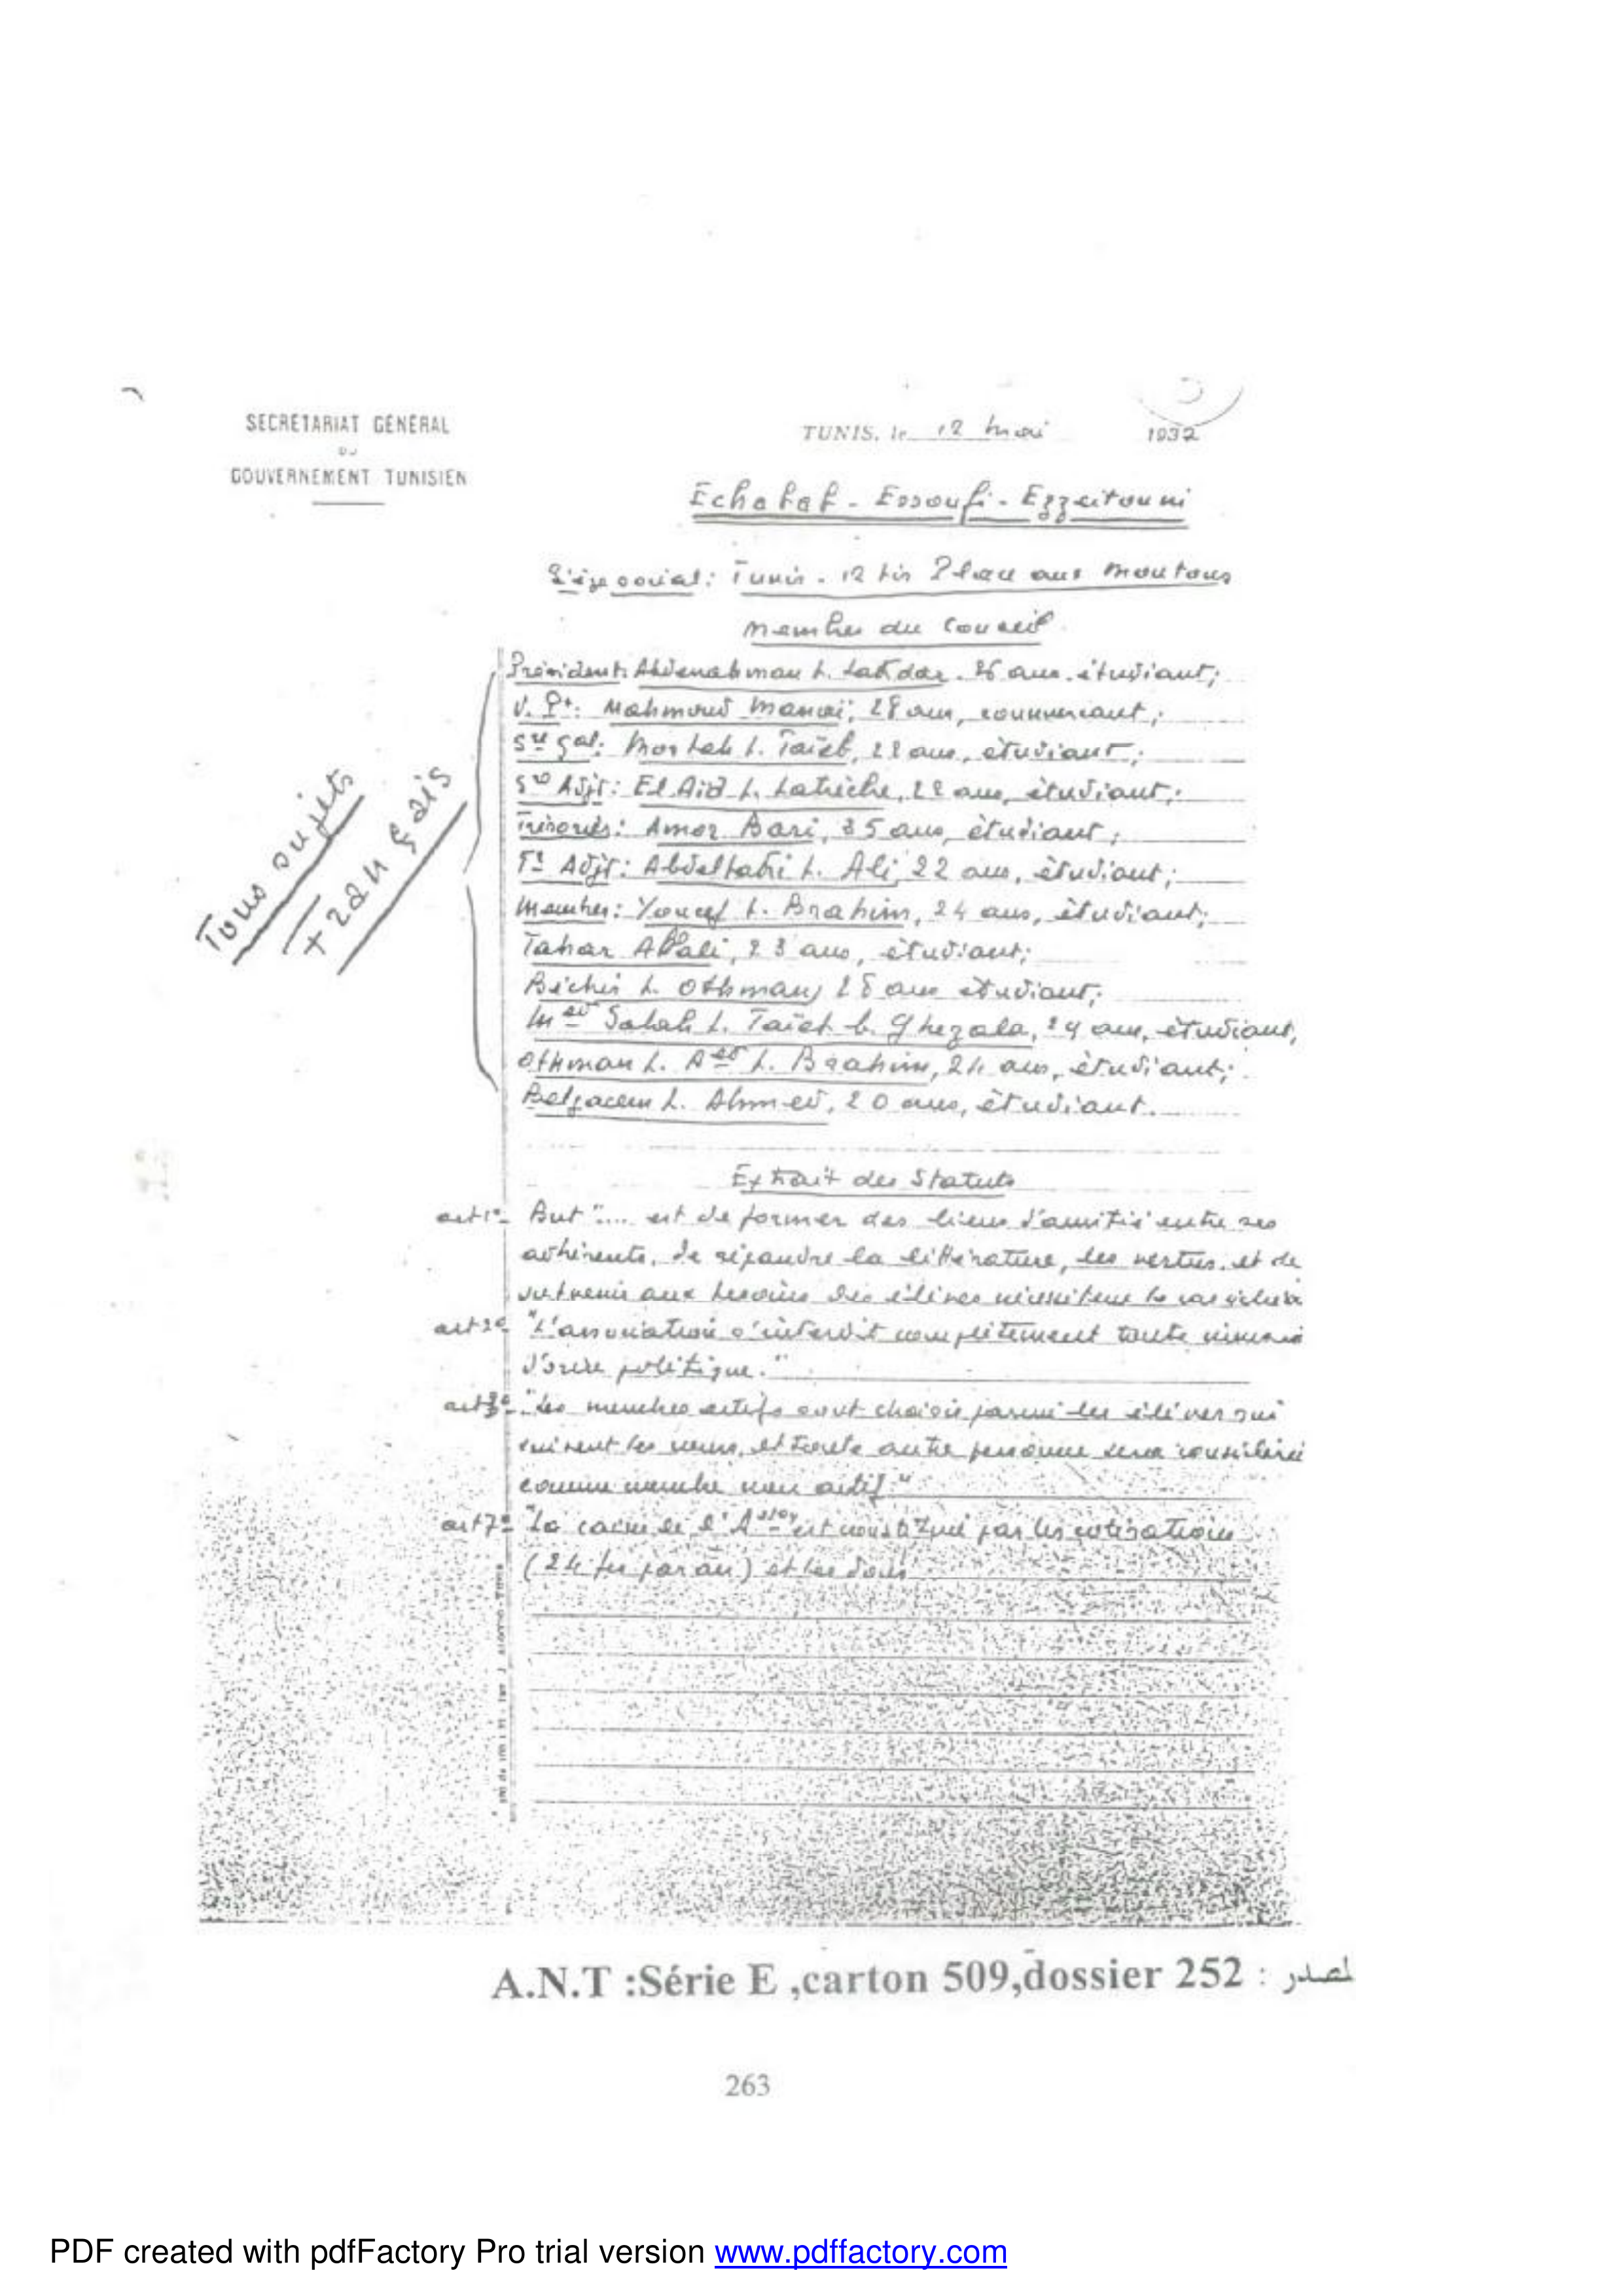 SECRÉTARIAT GÉNÉRAL
DU
GOUVERNEMENT TUNISIEN
TUNIS, le 12 mai 1932
Echabab - Essoufi - Ezzeitouni
Siège social: Tunis - 12 bis Place aux Moutons
Membres du Conseil
Président: Abderrahman b. Lakdar. 26 ans. étudiant;
V. Pt: Mahmoud Mamoï; 28 ans, commerçant;
Sre gal: b. Taïeb, 22 ans, étudiant;
Sre Adjt: El Aïd b. Latriche, 22 ans, étudiant;
Trésorier: Amor Bari, 35 ans, étudiant;
Tr Adjt: Abdelbaki b. Ali, 22 ans, étudiant;
Membres: Youcef b. Brahim, 24 ans, étudiant;
Tahar 23 ans, étudiant;
Béchir b. Othman, ans étudiant;
Med Salah b. Taïeb b. Ghezala, ans, étudiant,
Othman b. b. Brahim, 24 ans, étudiant;
Belgacem b. Ahmed, 20 ans, étudiant.
Tous sujets
Français
Extrait des Statuts
art 1er But ".... est de former des liens d'amitié entre ses
adhérents, de répandre la littérature, les vertus, et de
subvenir aux besoins des élèves nécessiteux
art 2e "L'association s'interdit complètement toute
d'ordre politique."
art 3e "Les membres actifs sont choisis parmi les élèves qui
suivent les cours, et toute autre personne sera considérée
comme membre non actif."
art 7e "La caisse de l'Aston est constitué par les cotisations
(24 frs par an) et les dons
A.N.T :Série E ,carton 509,dossier 252 : لصدر
263
PDF created with pdfFactory Pro trial version www.pdffactory.com